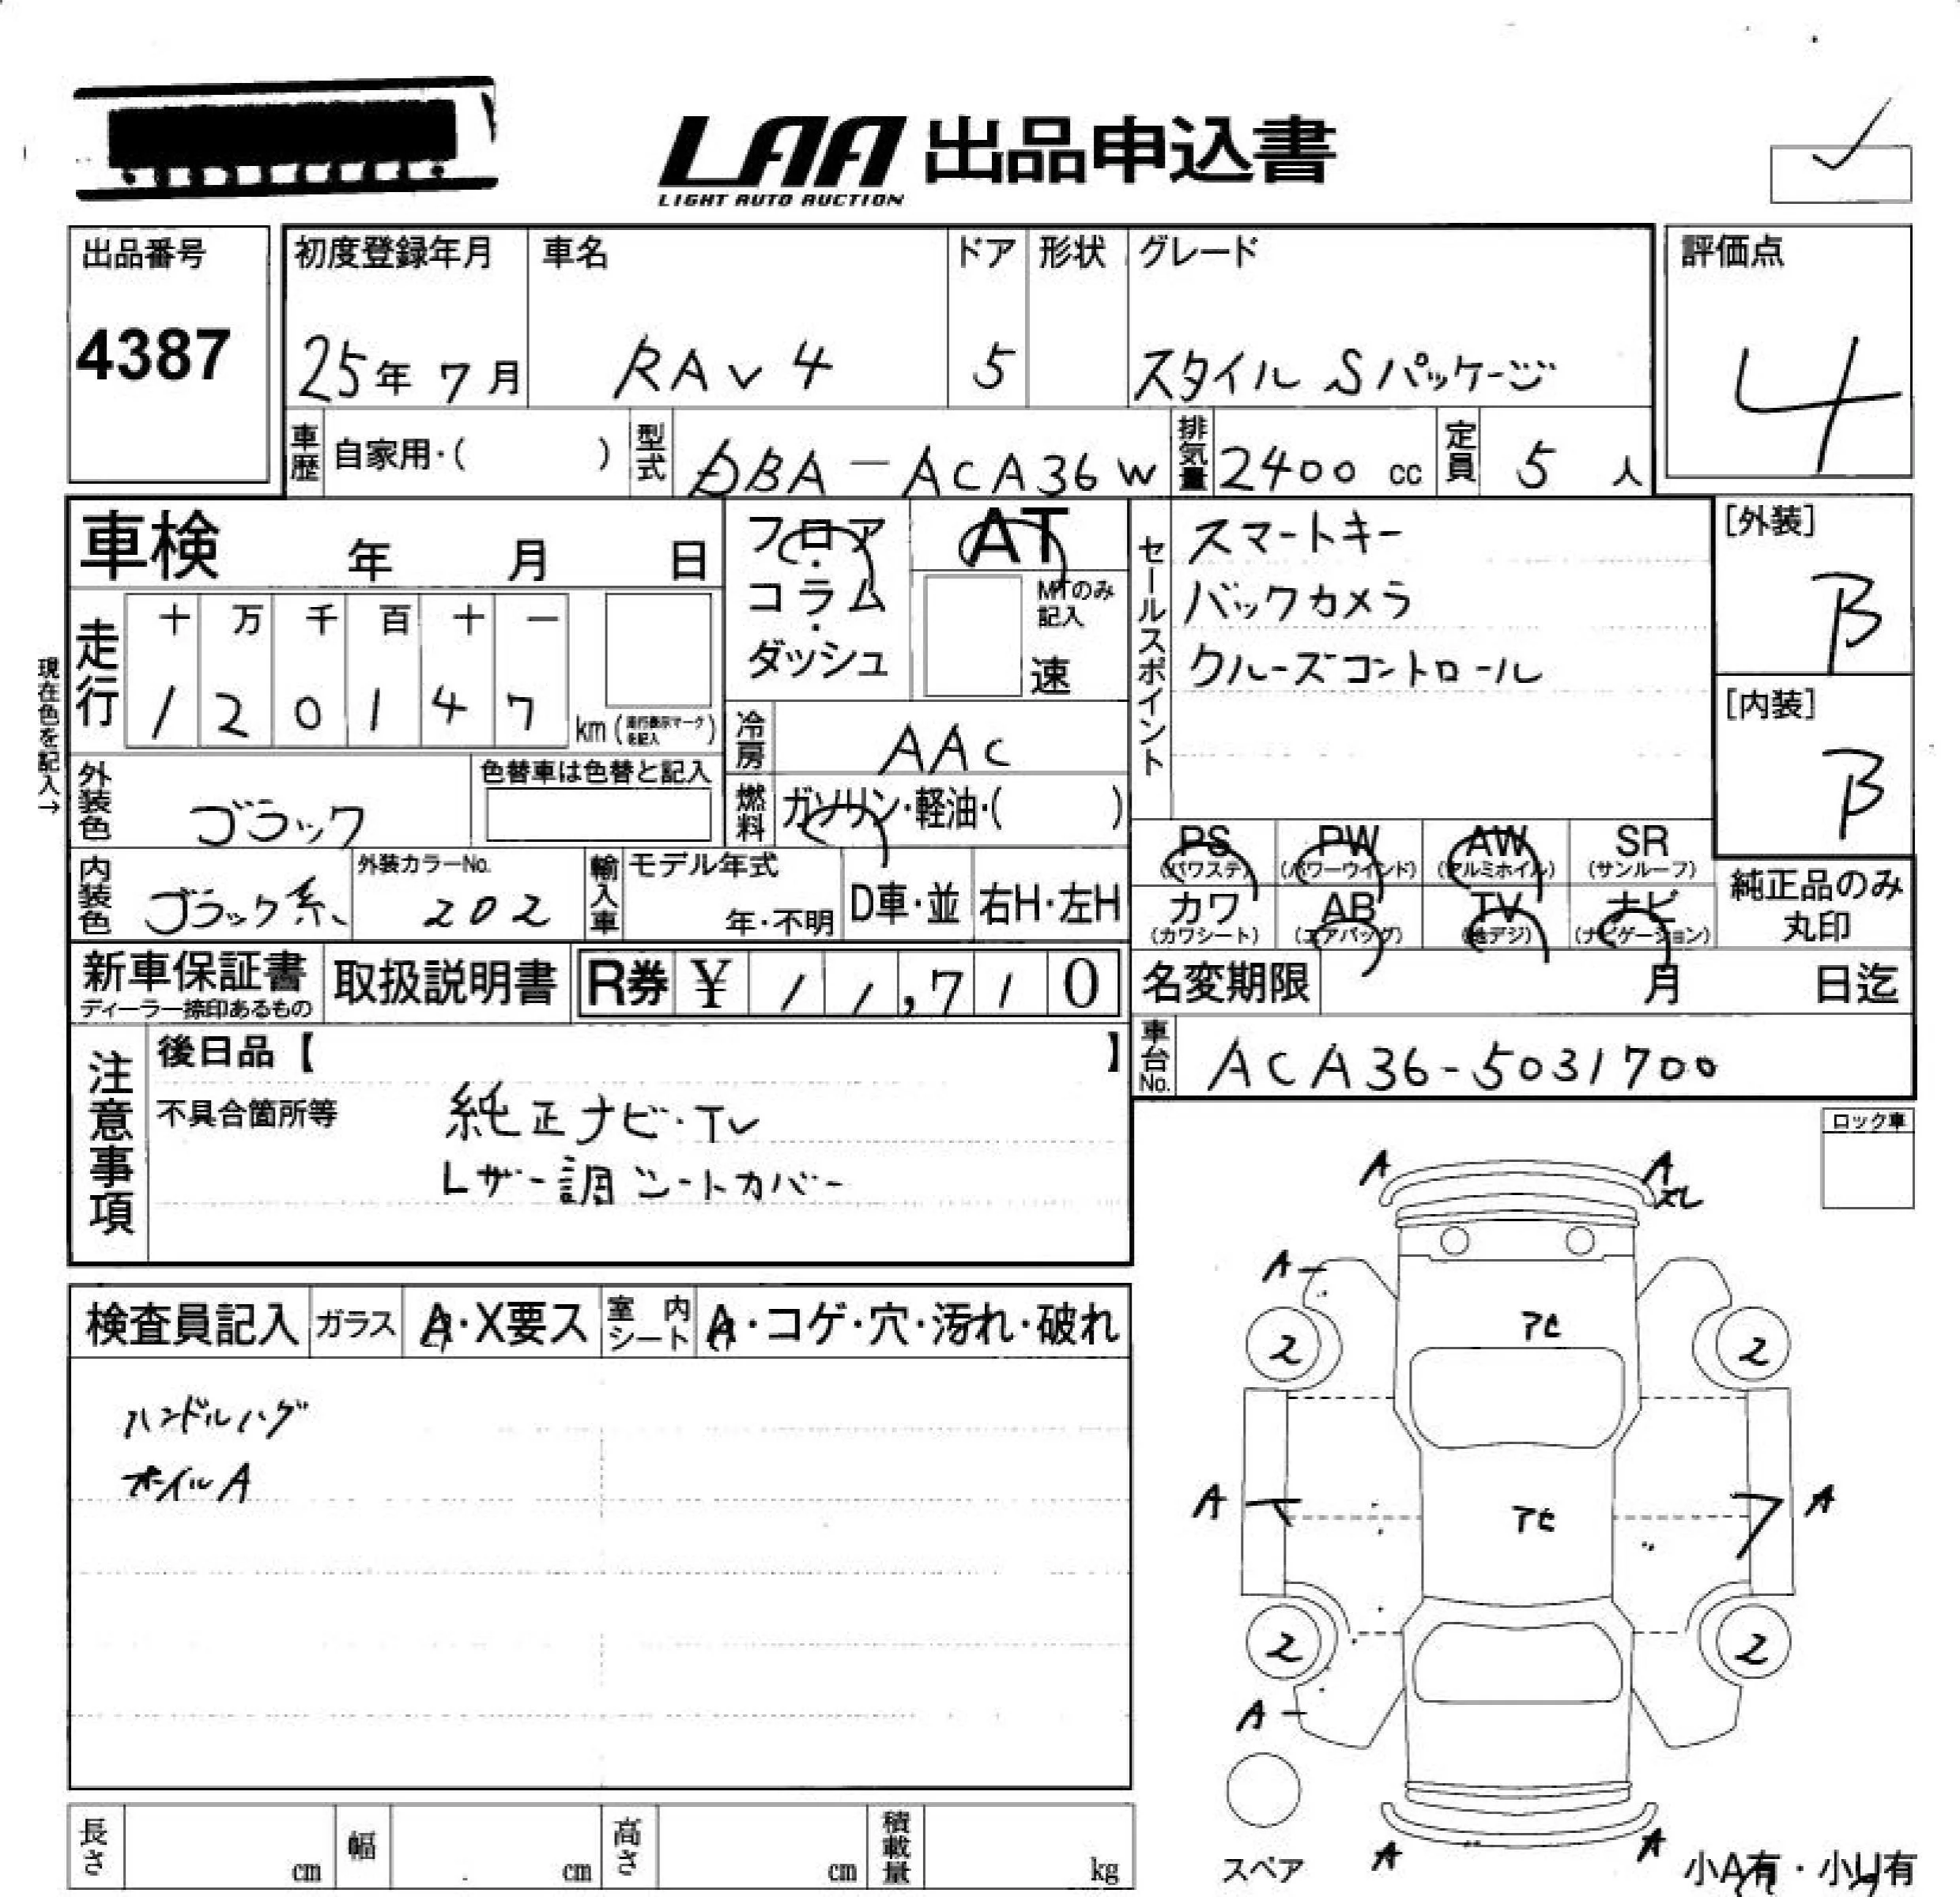 LAA 出品申込書
LIGHT AUTO AUCTION
出品番号
4387
初度登録年月
25年 7月
車名
RAV4
ドア
5
形状
グレード
スタイル Sパッケージ
評価点
4
車歴
自家用・( )
型式
DBA-ACA36W
排気量
2400 cc
定員
5 人
車検 年 月 日
フロア・コラム・ダッシュ
AT
MTのみ記入
速
走行
十 万 千 百 十 一
1 2 0 1 4 7 km (走行表示マークを記入)
現在色を記入→
冷房
AAC
燃料
ガソリン・軽油・( )
外装色
ブラック
色替車は色替と記入
内装色
ブラック系
外装カラーNo.
202
輸入車
モデル年式
年・不明
D車・並
右H・左H
セールスポイント
スマートキー
バックカメラ
クルーズコントロール
[外装]
B
[内装]
B
PS (パワステ) PW (パワーウインド) AW (アルミホイル) SR (サンルーフ)
カワ (カワシート) AB (エアバッグ) TV (地デジ) ナビ (ナビゲーション)
純正品のみ丸印
新車保証書
ディーラー捺印あるもの
取扱説明書
R券 ¥ 11,710
名変期限 月 日迄
車台No.
ACA36-5031700
注意事項
後日品【 】
不具合箇所等
純正ナビ・TV
レザー調シートカバー
ロック車
検査員記入
ガラス
A・X要ス
室内シート
A・コゲ・穴・汚れ・破れ
ハンドルハゲ
ホイルA
A
A
スレ
A
アセ
2
2
A
アセ
A
2
2
A
A
A
スペア
小A有・小U有
長さ cm
幅 cm
高さ cm
積載量 kg